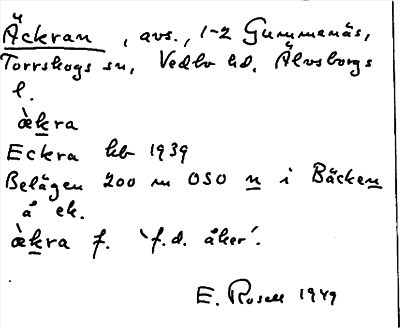 Äckran, avs., 1-2 Gummenäs,
Torrskogs sn, Vedbo hd, Älvsborgs
l.
ὰkra
Eckra kb 1939
Belägen 200 m OSO n i Bäcken
å ek.
ὰkra f. 'f.d. åker'.
E. Rosell 1949